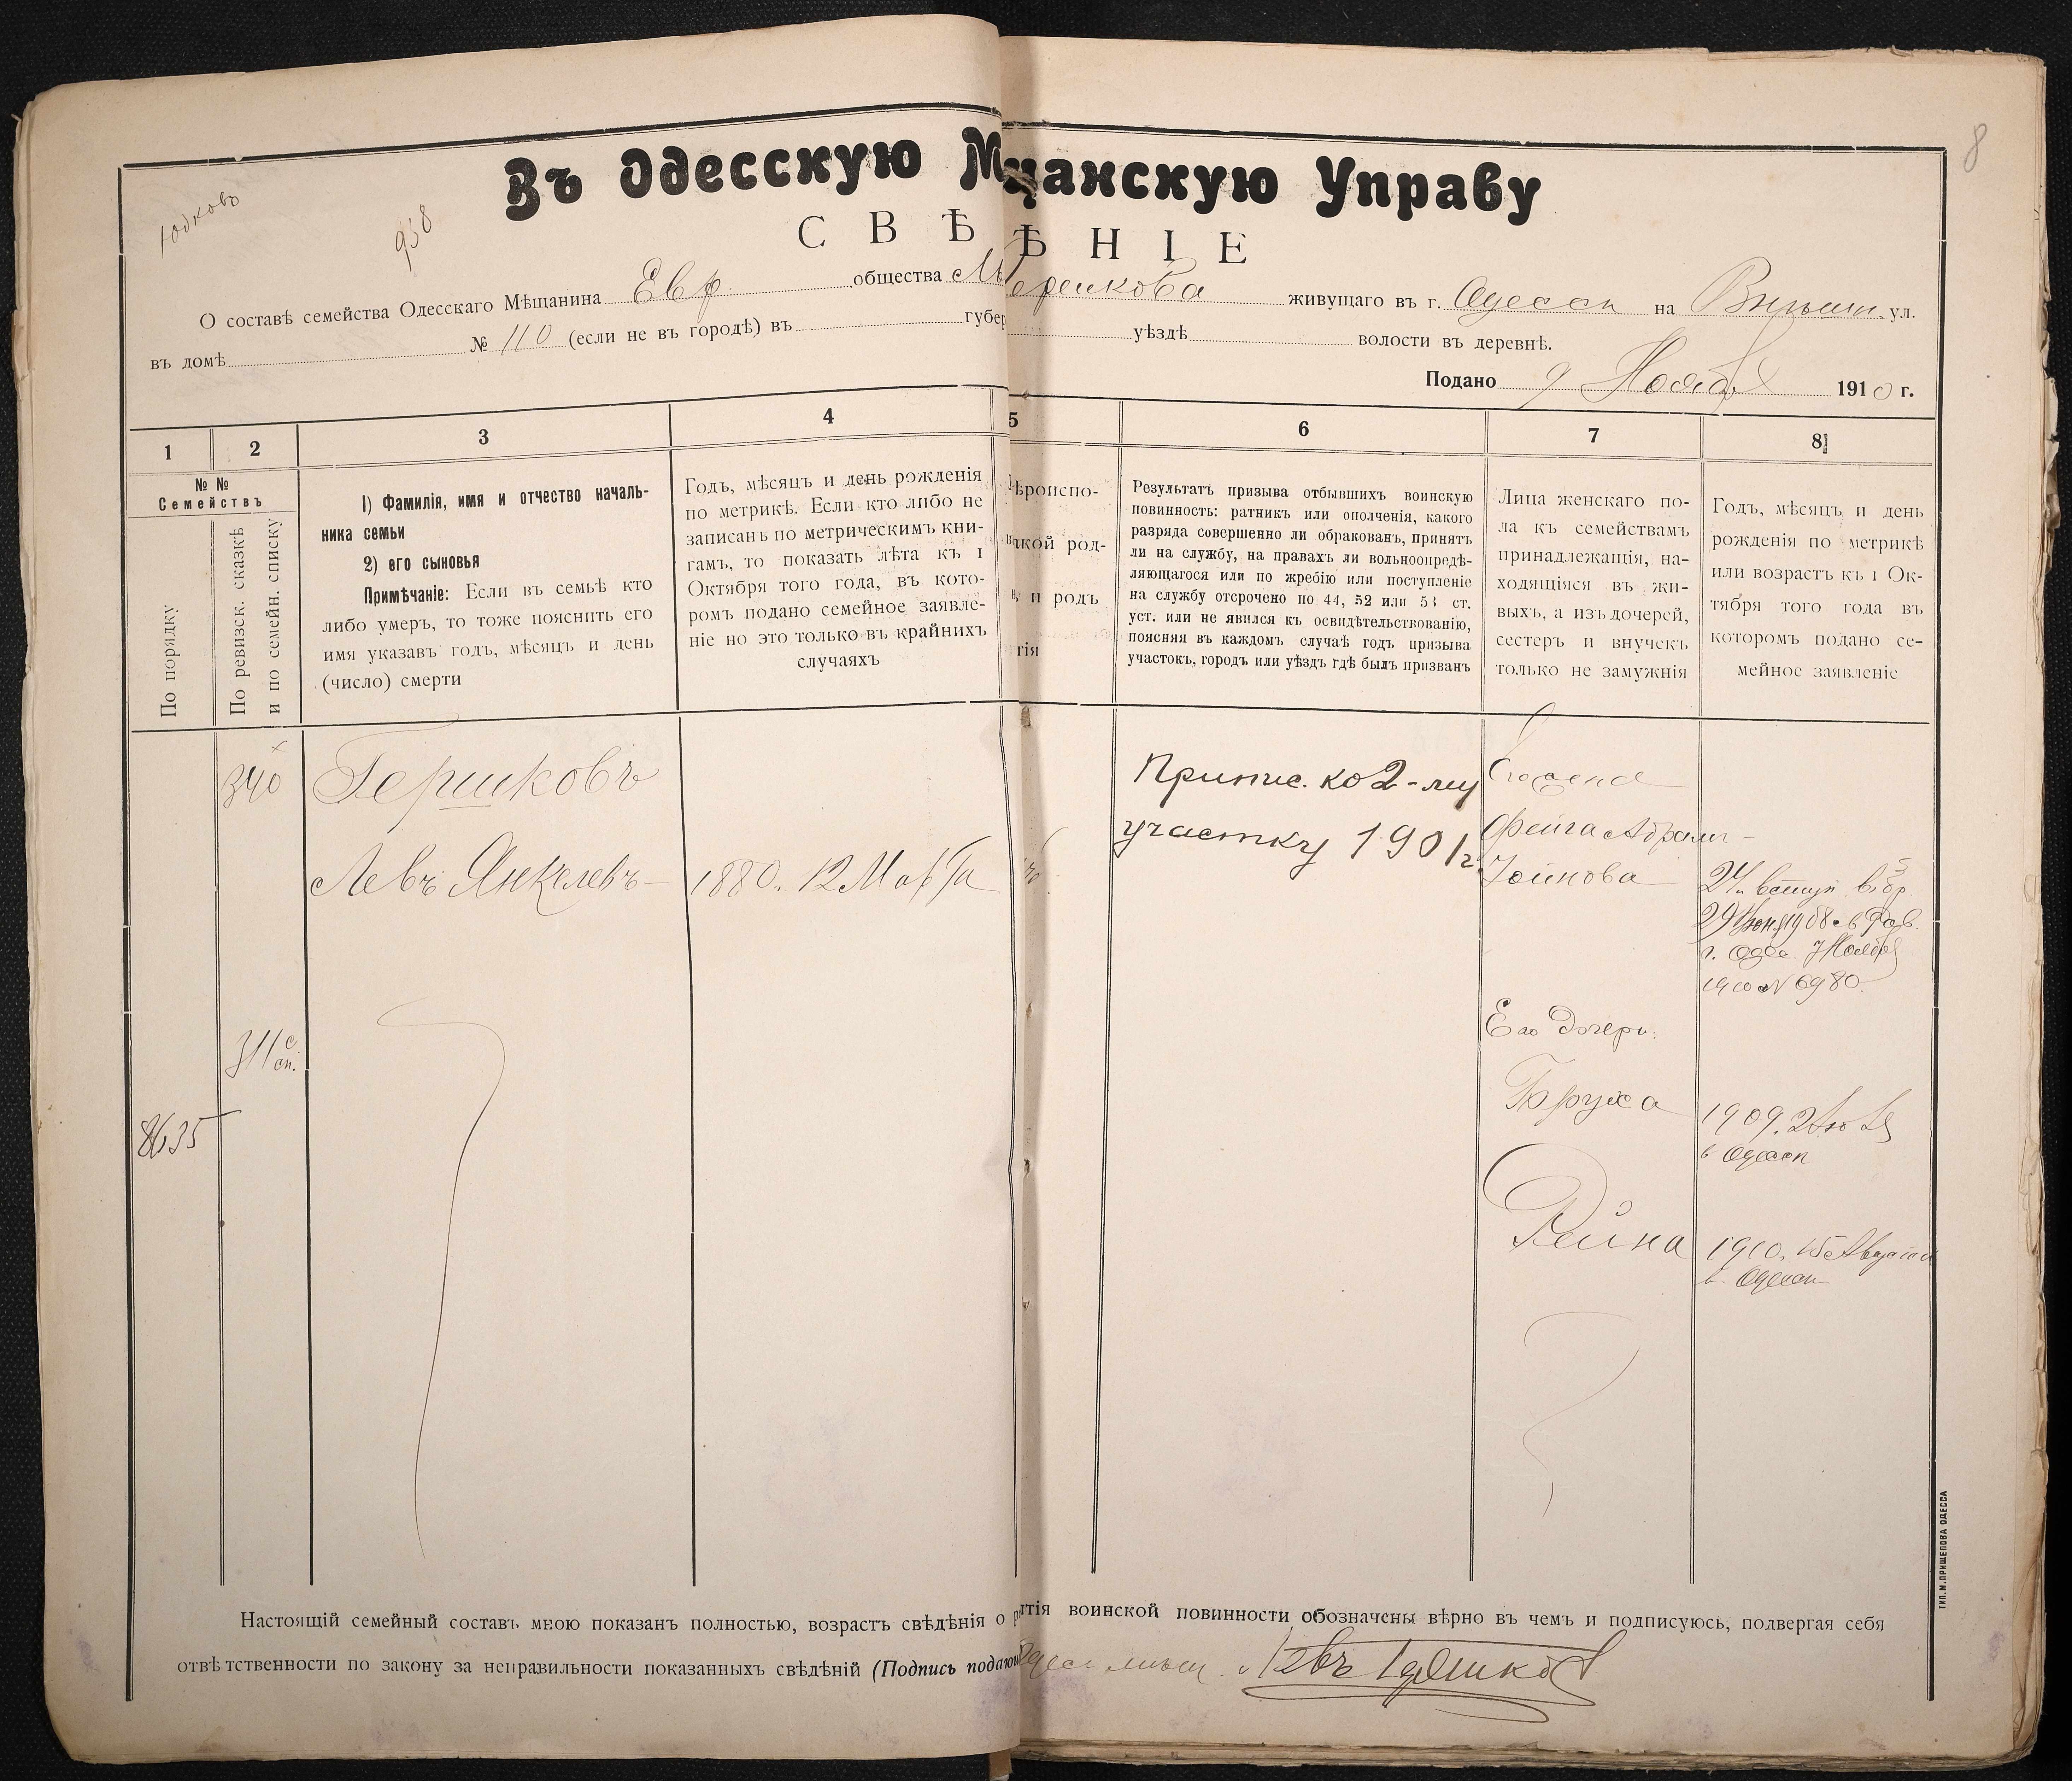 8
938
Въ Одесскую М щанскую Управу
СВѢ ѢНІЕ
О составѣ семейства Одесскаго Мѣщанина Евр. общества живущаго въ г. Одессѣ на Внѣшн. ул.
въ домѣ № 110 (если не въ городѣ) въ губер уѣздѣ волости въ деревнѣ.
Подано 9 Ноября 1910 г.
1 2 3 4 5 6 7 8
№ №
Семействъ
По порядку
По ревизск. сказкѣ
и по семейн. списку
1) Фамилія, имя и отчество началь-
ника семьи
2) его сыновья
Примѣчаніе: Если въ семьѣ кто
либо умеръ, то тоже пояснить его
имя указавъ годъ, мѣсяцъ и день
(число) смерти
Годъ, мѣсяцъ и день рожденія
по метрикѣ. Если кто либо не
записанъ по метрическимъ кни-
гамъ, то показать лѣта къ 1
Октября того года, въ кото-
ромъ подано семейное заявле-
ніе но это только въ крайнихъ
случаяхъ
ѣроиспо-
акой род-
и родъ
гія
Результатъ призыва отбывшихъ воинскую
повинность: ратникъ или ополченія, какого
разряда совершенно ли обракованъ, принятъ
ли на службу, на правахъ ли вольноопредѣ-
ляющагося или по жребію или поступленіе
на службу отсрочено по 44, 52 или 53 ст.
уст. или не явился къ освидѣтельствованію,
поясняя въ каждомъ случаѣ годъ призыва
участокъ, городъ или уѣздъ гдѣ былъ призванъ
Лица женскаго по-
ла къ семействамъ
принадлежащія, на-
ходящіяся въ жи-
выхъ, а изъ дочерей,
сестеръ и внучекъ
только не замужнія
Годъ, мѣсяцъ и день
рожденія по метрикѣ
или возрастъ къ 1 Ок-
тября того года въ
которомъ подано се-
мейное заявленіе
340
Гершковъ
Левъ Янкелевъ
1880. 12 Марта
Припис. ко 2-му
участку 1901 г.
Его жена
Фейга Абрам-
Хоинова
24 л. вступ. в бр.
29 Іюня 1908 Рав.
г. Одес. 7 Ноября
1910 № 6980.
311 с
сп.
8635
Его дочери:
Бруха
1909. 2 Іюля
в Одессѣ
Рейна
1910. 15 Августа
в Одессѣ
Настоящій семейный составъ мною показанъ полностью, возрастъ свѣдѣнія о р тія воинской повинности обозначены вѣрно въ чемъ и подписуюсь, подвергая себя
отвѣтственности по закону за неправильности показанныхъ свѣдѣній (Подпись подаю Левъ Гершков
ТИП. М. ПРИЩЕПОВА ОДЕССА